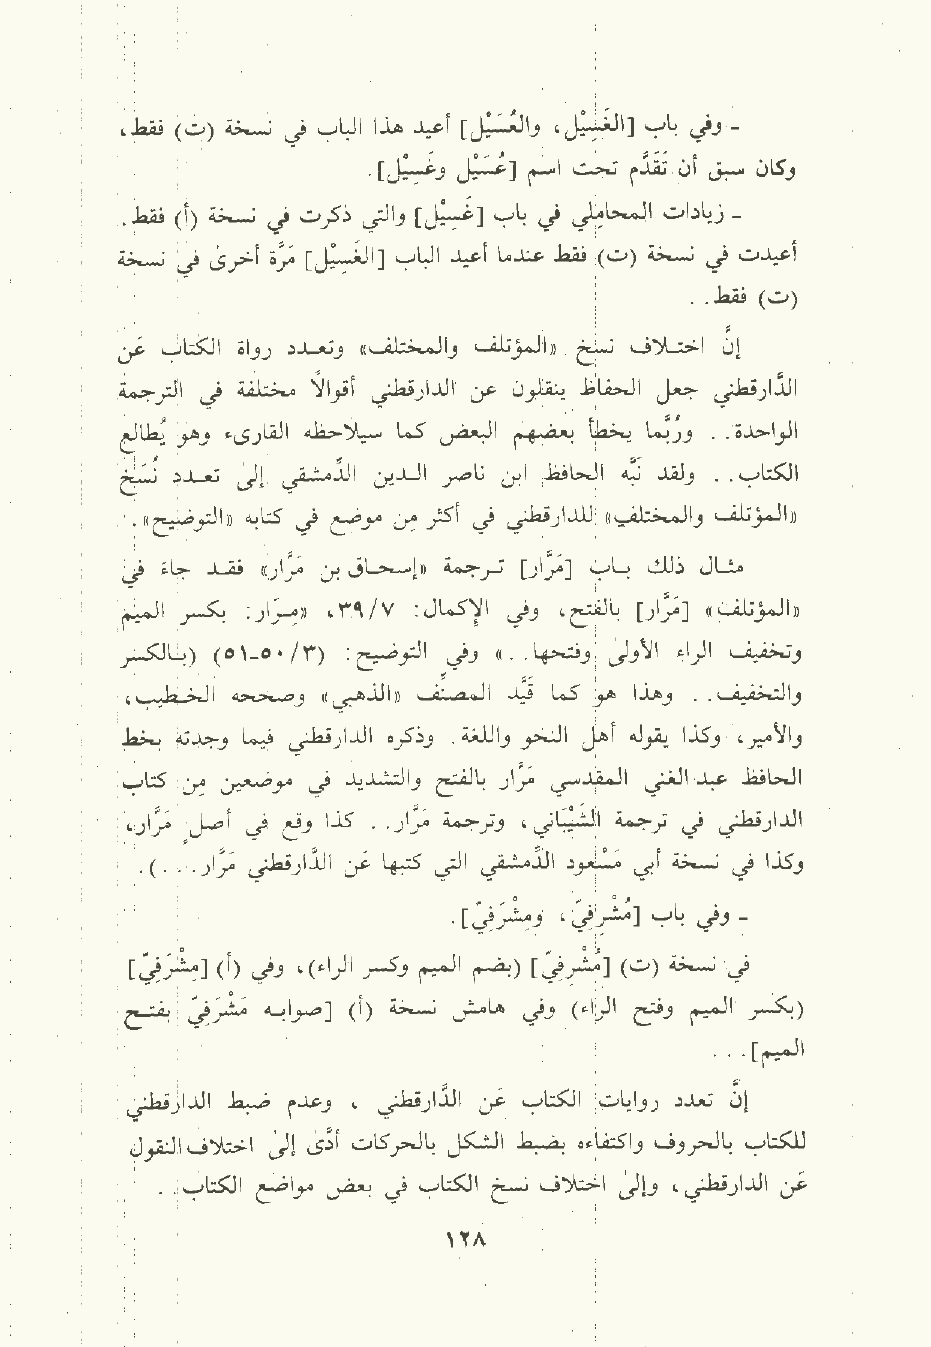 - وفي باب [الغَسِيْل، والعُسَيْل] أعيد هذا الباب في نسخة (ت) فقط،
وكان سبق أن تَقَدَّم تحت اسم [عُسَيْل وغَسِيْل].
- زيادات المحاملي في باب [غَسِيْل] والتي ذكرت في نسخة (أ) فقط.
أعيدت في نسخة (ت) فقط عندما أعيد الباب [الغَسِيْل] مَرَّة أخرى في نسخة
(ت) فقط. .
إنَّ اختلاف نسخ «المؤتلف والمختلف» وتعدد رواة الكتاب عَن
الدَّارقطني جعل الحفاظ ينقلون عن الدارقطني أقوالاً مختلفة في الترجمة
الواحدة. . ورُبَّما يخطأ بعضهم البعض كما سيلاحظه القارىء وهو يُطالع
الكتاب. . ولقد نَبَّه الحافظ ابن ناصر الدين الدِّمشقي إلى تعدد نُسَخ
«المؤتلف والمختلف» للدارقطني في أكثر من موضع في كتابه «التوضيح».
مثال ذلك باب [مَرَّار] ترجمة «إسحاق بن مَرَّار» فقد جاء في
«المؤتلف» [مَرَّار] بالفتح، وفي الإكمال: ٣٩/٧، «مِرَار: بكسر الميم
وتخفيف الراء الأولى وفتحها. .» وفي التوضيح: (٣/ ٥٠-٥١) (بالكسر
والتخفيف. . وهذا هو كما قَيَّد المصنِّف «الذهبي» وصححه الخطيب،
والأمير، وكذا يقوله أهل النحو واللغة. وذكره الدارقطني فيما وجدته بخط
الحافظ عبد الغني المقدسي مَرَّار بالفتح والتشديد في موضعين من كتاب
الدارقطني في ترجمة الشَّيْبَاني، وترجمة مَرَّار. . كذا وقع في أصل مَرَّار،
وكذا في نسخة أبي مَسْعود الدِّمشقي التي كتبها عَن الدَّارقطني مَرَّار. . .).
- وفي باب [مُشْرِفِيّ، ومِشْرَفِيّ].
في نسخة (ت) [مُشْرِفِيّ] (بضم الميم وكسر الراء)، وفي (أ) [مِشْرَفِيّ]
(بكسر الميم وفتح الراء) وفي هامش نسخة (أ) [صوابه مَشْرَفِيّ بفتح
الميم]. . .
إنَّ تعدد روايات الكتاب عَن الدَّارقطني ، وعدم ضبط الدارقطني
للكتاب بالحروف واكتفاءه بضبط الشكل بالحركات أدَّى إلى اختلاف النقول
عَن الدارقطني، وإلى اختلاف نسخ الكتاب في بعض مواضع الكتاب. .
١٢٨